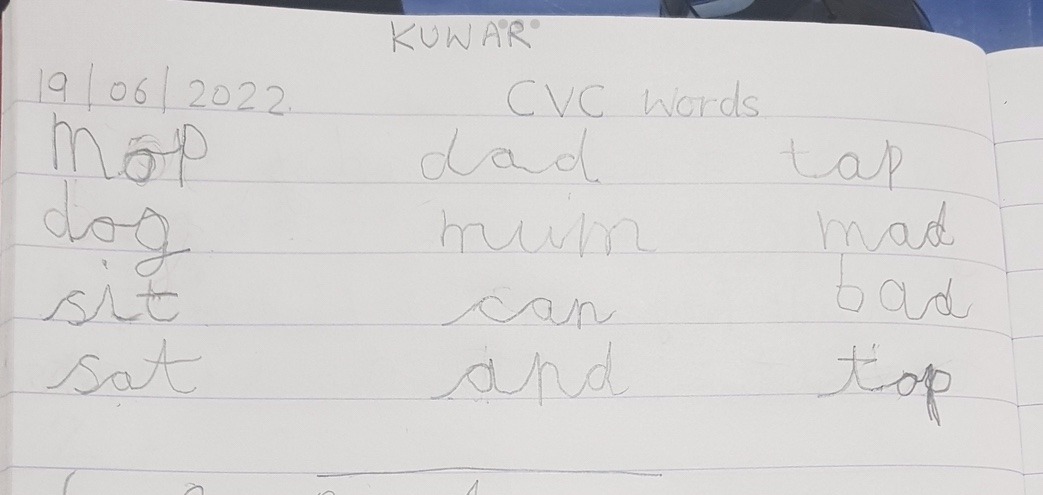 KUWAR
19/06/2022. CVC words
mop dad tap
dog mum mad
sit can bad
sat and top